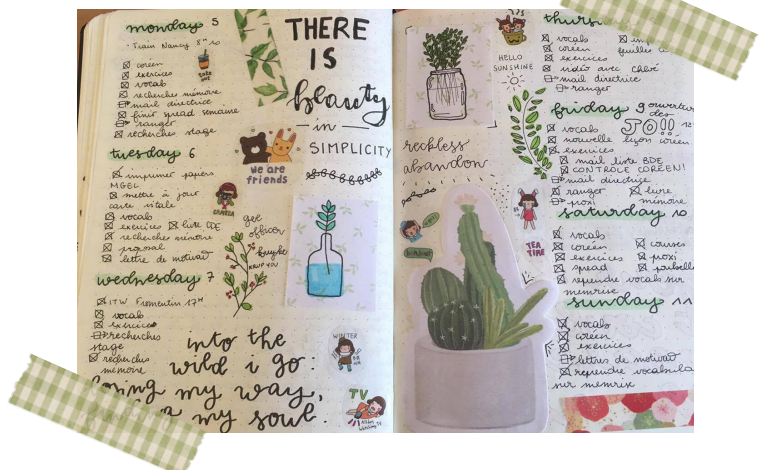 monday 5
Train Nancy 8ʰ10
coréen
exercices
vocab
recherches mémoire
mail directrice
finir spread semaine
ranger
recherches stage
tuesday 6
imprimer papiers
MGEL
mettre à jour
carte vitale
vocab
exercices
recherches mémoire
proposal
lettre de motivaᵒ
wednesday 7
ITW Fromentin 17ᴴ
vocab
exercices
recherches
stage
recherches
mémoire
THERE
IS
beauty
in
SIMPLICITY
We are
friends
get
officer
KNUP YOU
into the
wild i go:
losing my way,
my soul.
WINTER
TV
HELLO
SUNSHINE
reckless
abandon
TEA
TIME
thurs
vocab
coréen
exercices
vidéo avec chloé
mail directrice
ranger
friday 9
ouverture
des
JO!!
vocab
nouvelle leçon coréen
exercices
mail liste BDE
CONTROLE COREEN!
mail directrice
ranger
livre
proxi
mémoire
saturday 10
vocab
coréen
courses
exercices
proxi
spread
poubelle
reprendre vocab sur
memrise
sunday 11
vocab
coréen
exercices
lettres de motivaᵒ
reprendre vocab
sur memrix